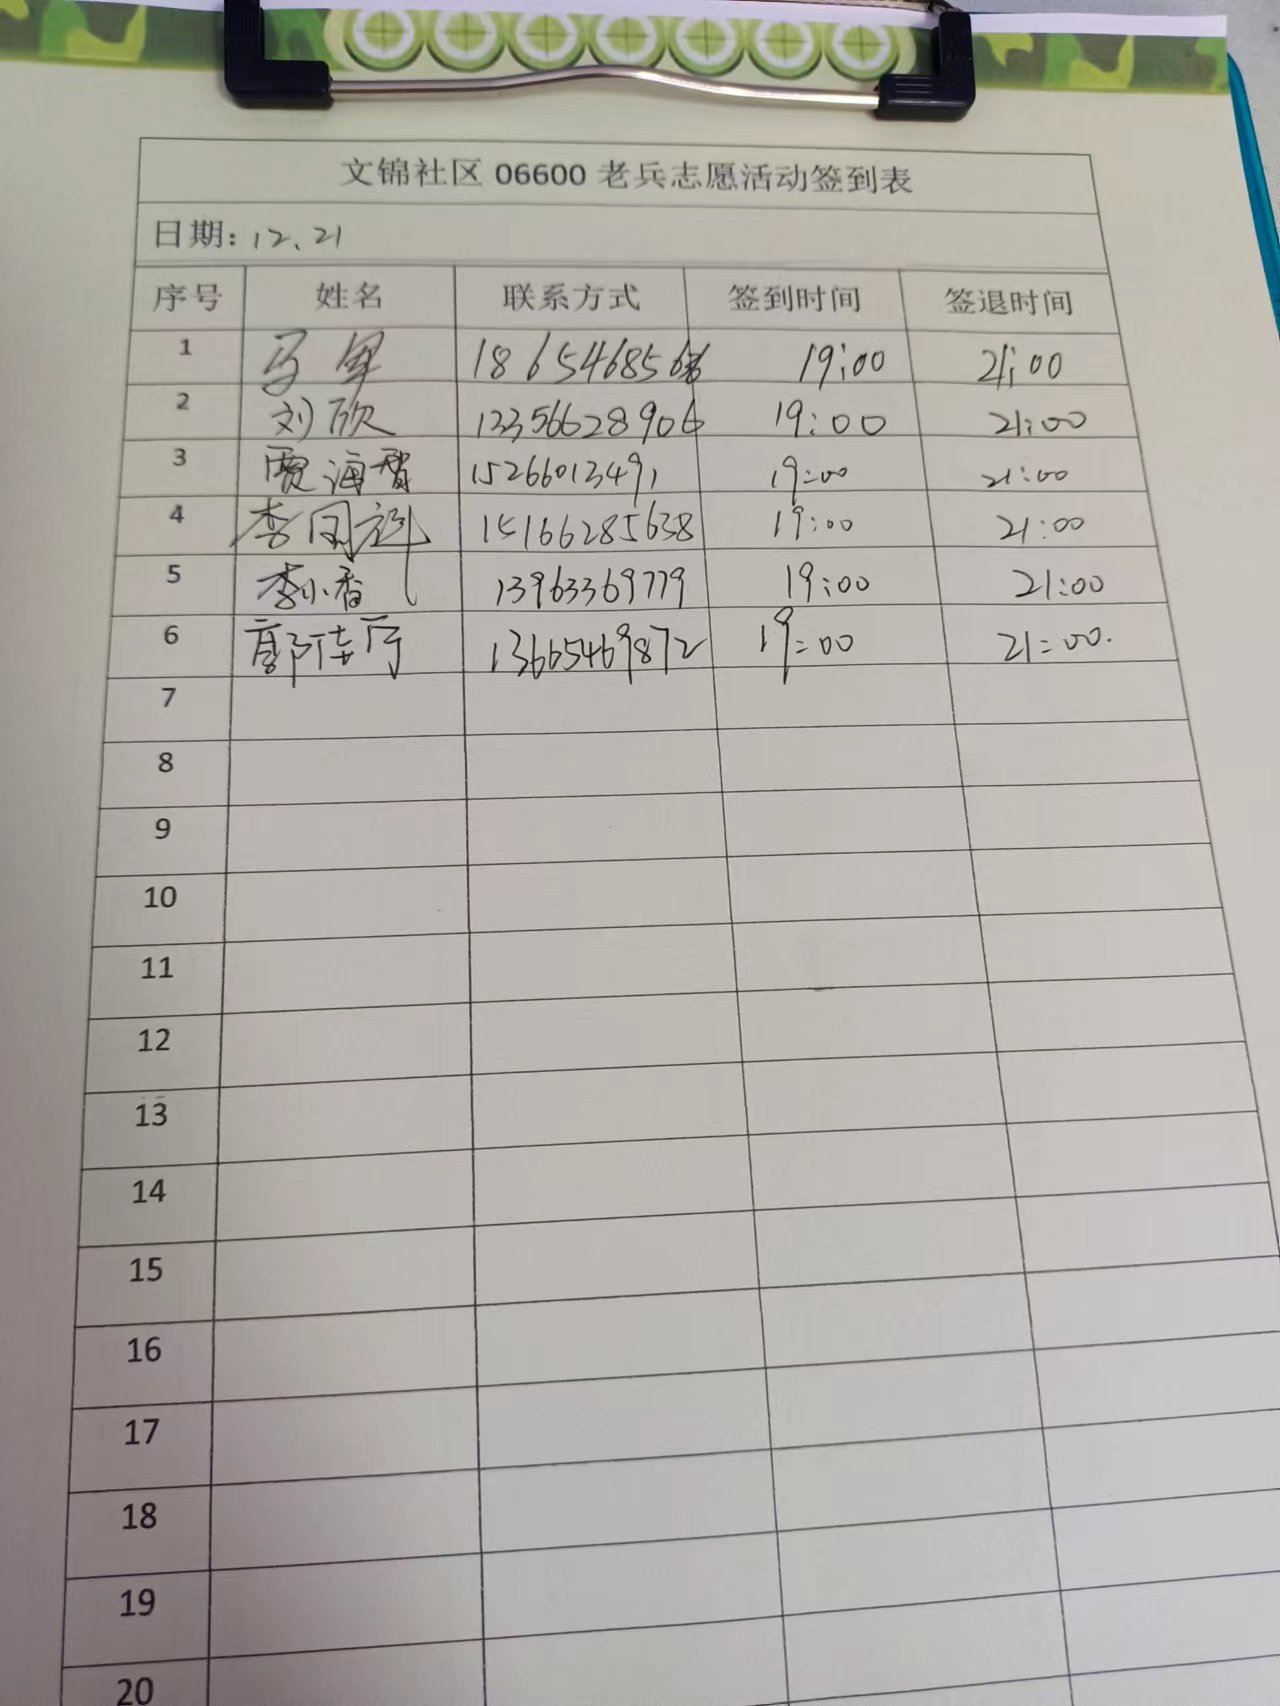 文锦社区 06600 老兵志愿活动签到表
日期: 12.21
序号 姓名 联系方式 签到时间 签退时间
1 马 19:00 21:00
2 刘欣 13356628906 19:00 21:00
3 贾海智 15266013491 19:00 21:00
4 李国 15166285638 19:00 21:00
5 李小香 13963369779 19:00 21:00
6 郭佳 13665469872 19:00 21:00.
7
8
9
10
11
12
13
14
15
16
17
18
19
20